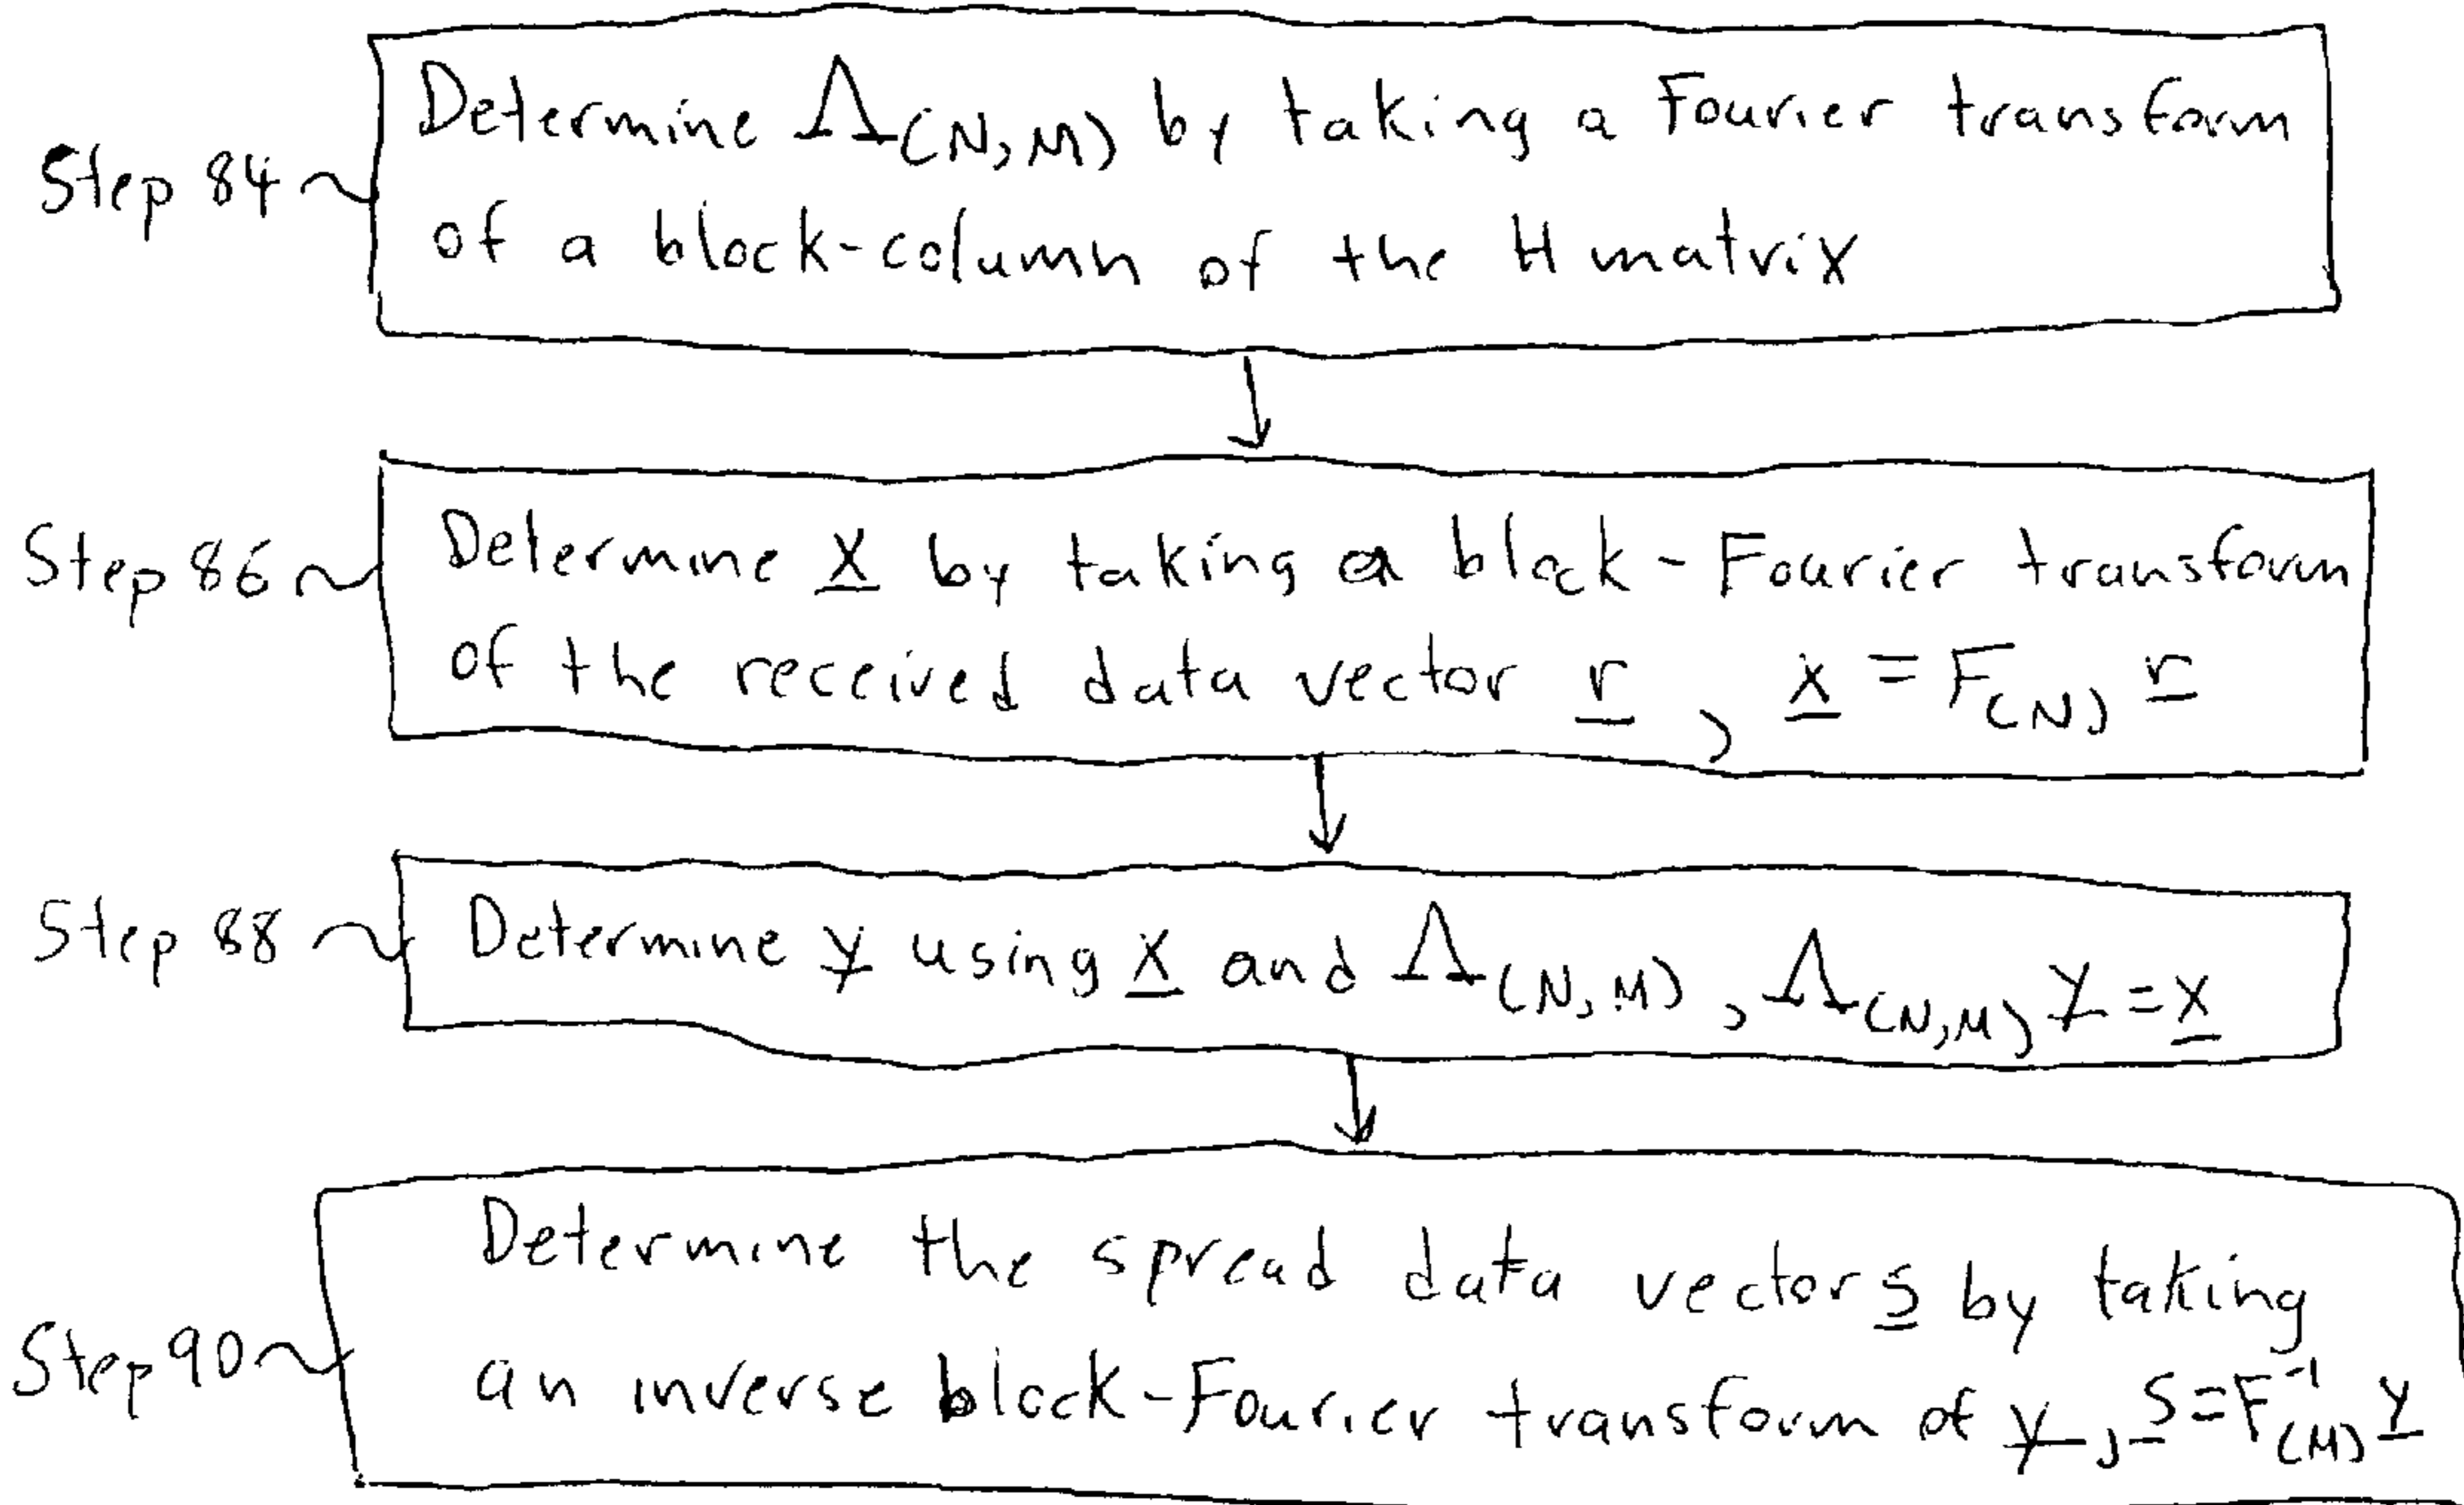 Step 84
Determine Λ(N,M) by taking a Fourier transform
of a block-column of the H matrix
Step 86
Determine x by taking a block-Fourier transform
of the received data vector r, x = F(N) r
Step 88
Determine y using x and Λ(N,M), Λ(N,M) y = x
Step 90
Determine the spread data vector s by taking
an inverse block-Fourier transform of y, s = F⁻¹(M) y